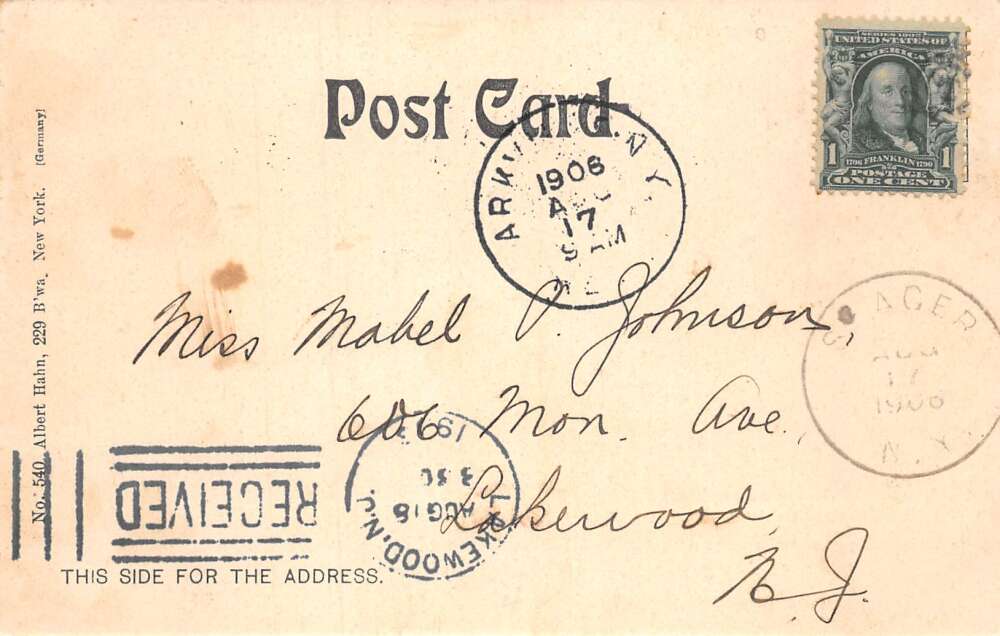 Post Card.
SERIES 1902
UNITED STATES OF
AMERICA
1 1796 FRANKLIN 1790 1
POSTAGE
ONE CENT
N.Y.
1906
AUG
17
9 AM
AGER
AUG
17
1906
N.Y.
Miss Mabel P. Johnson,
606 Mon. Ave.
Lakewood,
N. J.
RECEIVED
LAKEWOOD, N.J.
AUG 18
3 30
19
No. 540. Albert Hahn, 229 B'wa. New York. [Germany]
THIS SIDE FOR THE ADDRESS.